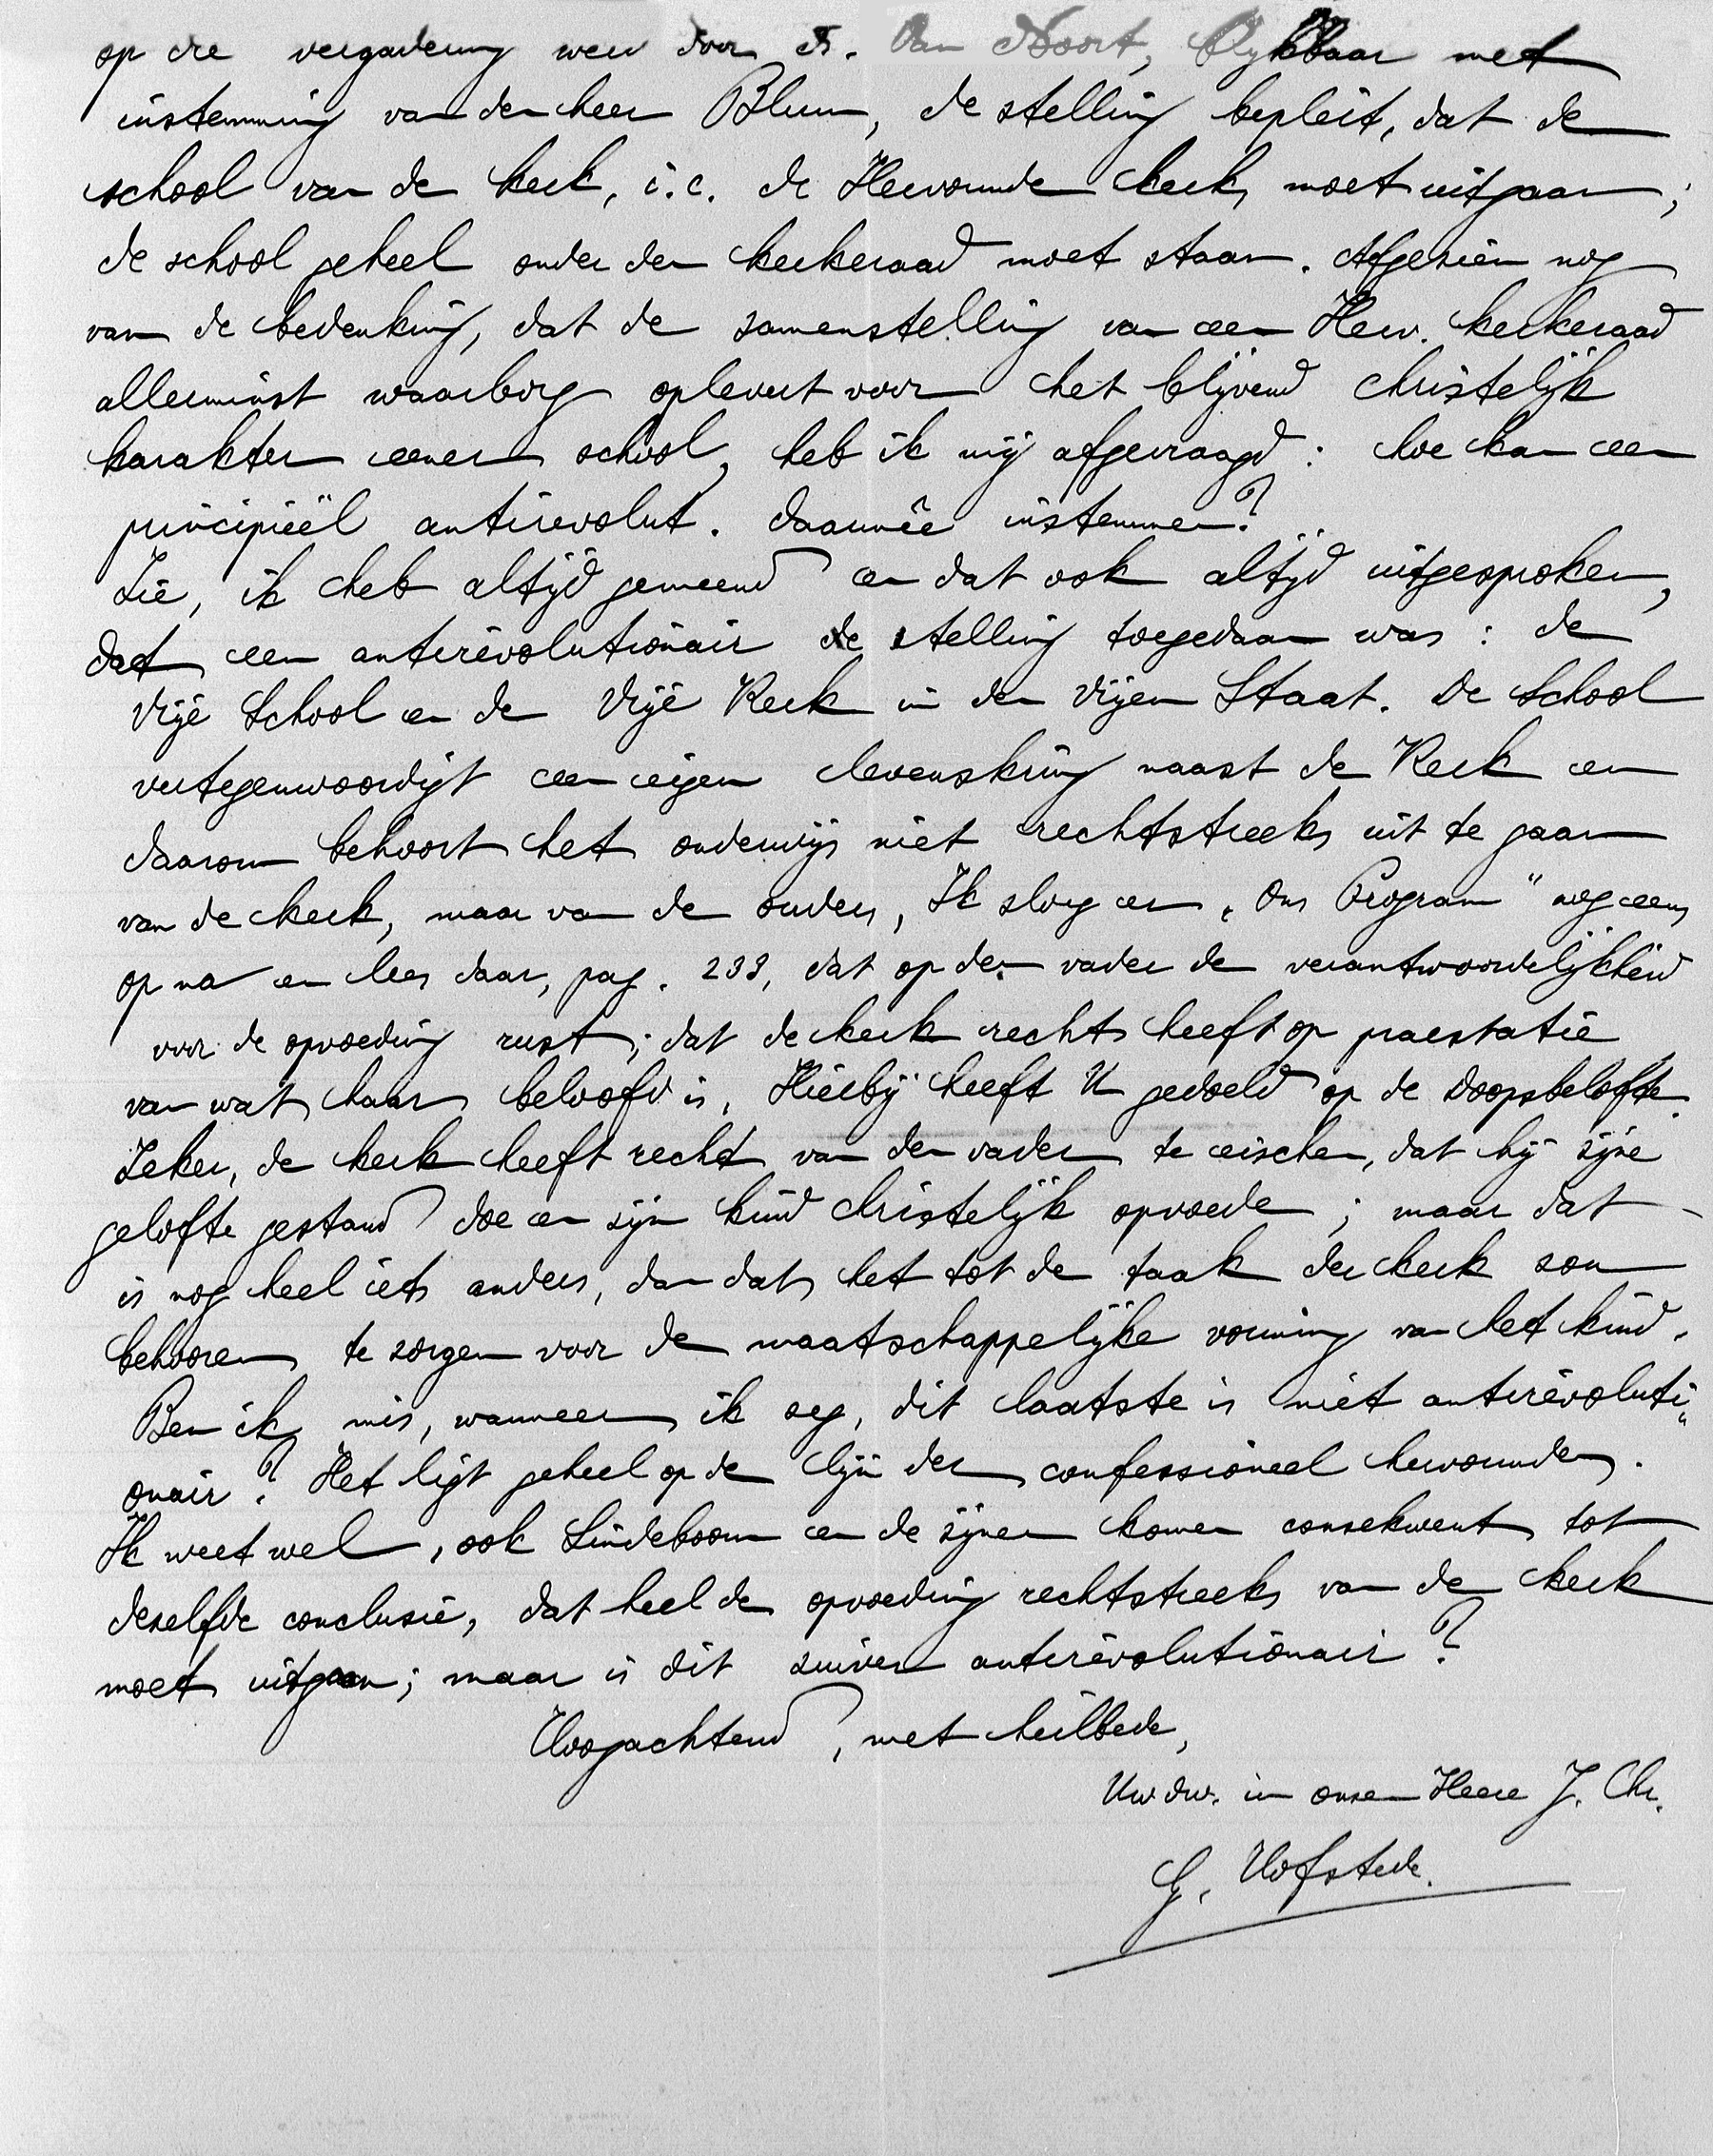 op die vergadering werd door ds. Van Noort, blykbaar met
instemming van den heer Blum, de stelling bepleit, dat de
school van de kerk, i.c. de Hervormde kerk, moet uitgaan;
de school geheel onder den kerkeraad moet staan. Afgezien nog
van de bedenking, dat de samenstelling van een Herv. kerkeraad
allerminst waarborg oplevert voor het blijvend christelijk
karakter eener school, heb ik mij afgevraagd: hoe kan een
principiëel antirevolut. daarmêe instemmen?
Zie, ik heb altijd gemeend en dat ook altijd uitgesproken,
dat een antirevolutionair de stelling toegedaan was: de
Vrije School en de Vrije Kerk in den Vrijen Staat. De School
vertegenwoordigt een eigen levenskring naast de Kerk en
daarom behoort het onderwijs niet rechtstreeks uit te gaan
van de kerk, maar van de ouders, Ik sloeg er „Ons Program" nog eens
op na en lees daar, pag. 233, dat op den vader de verantwoordelijkheid
voor de opvoeding rust; dat de kerk recht heeft op praestatie
van wat haar beloofd is. Hierbij heeft U gedoeld op de doopsbelofte.
Zeker, de kerk heeft recht van den vader te eischen, dat hij zijne
gelofte gestand doe en zijn kind christelijk opvoede; maar dat
is nog heel iets anders, dan dat het tot de taak der kerk zou
behooren te zorgen voor de maatschappelijke vorming van het kind.
Ben ik mis, wanneer ik zeg, dit laatste is niet antirevoluti„
onair? Het ligt geheel op de lijn der confessioneel hervormden.
Ik weet wel, ook Lindeboom en de zijnen komen consekwent tot
dezelfde conclusie, dat heel de opvoeding rechtstreeks van de kerk
moet uitgaan; maar is dit zuiver antirevolutionair?
Hoogachtend, met heilbede,
Uw dw. in onzen Heere J. Chr.
G. Hofstede.